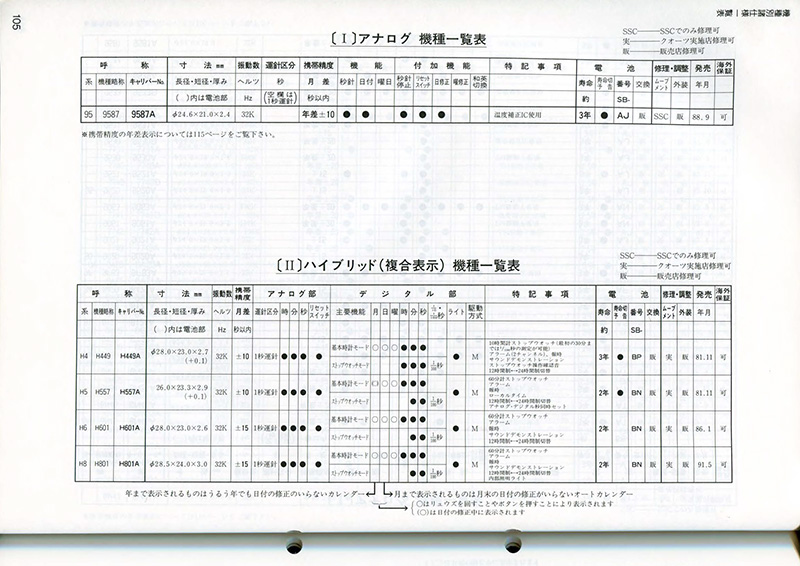 105
機種別諸仕様一覧表
〔Ⅰ〕アナログ 機種一覧表
SSC――SSCでのみ修理可
実――クオーツ実施店修理可
販――販売店修理可
呼 称 寸 法 mm 振動数 運針区分 携帯精度 機 能 付 加 機 能 特 記 事 項 電 池 修理・調整 発売 海外保証
系 機種略称 キャリバーNo. 長径・短径・厚み ヘルツ 秒 月 差 秒針 日付 曜日 秒針停止 リセットスイッチ 日修正 曜修正 和英切換 寿命 寿命切予告 番号 交換 ムーブメント 外装 年月
( )内は電池部 Hz (空欄は1秒運針) 秒以内 約 SB-
95 9587 9587A φ24.6×21.0×2.4 32K 年差±10 ● ● ● ● ● 温度補正IC使用 3年 ● AJ 販 SSC 販 88.9 可
※携帯精度の年差表示については115ページをご覧下さい。
〔Ⅱ〕ハイブリッド(複合表示) 機種一覧表
SSC――SSCでのみ修理可
実――クオーツ実施店修理可
販――販売店修理可
呼 称 寸 法 mm 振動数 携帯精度 アナログ部 デ ジ タ ル 部 特 記 事 項 電 池 修理・調整 発売 海外保証
系 機種略称 キャリバーNo. 長径・短径・厚み ヘルツ 月差 運針区分 時 分 秒 リセットスイッチ 主要機能 月 日 曜 時 分 秒 ライト 駆動方式 寿命 寿命切予告 番号 交換 ムーブメント 外装 年月
( )内は電池部 Hz 秒以内 約 SB-
H4 H449 H449A φ28.0×23.0×2.7 (+0.1) 32K ±10 1秒運針 ● ● ● ● 基本時計モード ○ ○ ○ ● ● ● ● M 3年 ● BP 販 実 販 81.11 可
ストップウオッチモード ● ● 1/100秒
アラーム(2チャンネル)、報時
サウンドデモンストレーション
ストップウオッチ操作確認音
12時間制←→24時間制切替
H5 H557 H557A 26.0×23.3×2.9 (+0.1) 32K ±10 1秒運針 ● ● ● ● 基本時計モード ○ ○ ○ ● ● ● ● M 2年 ● BN 販 実 販 81.11 可
ストップウオッチモード ● ● 1/100秒
60分計ストップウオッチ
アラーム
報時
ローカルタイム
12時間制←→24時間制切替
アナログ・デジタル秒同時セット
H6 H601 H601A φ28.0×23.0×2.6 32K ±15 1秒運針 ● ● ● ● 基本時計モード ○ ○ ○ ● ● ● ● M 2年 BN 販 実 販 86.1 可
ストップウオッチモード ● ● 1/100秒
60分計ストップウオッチ
アラーム
報時
サウンドデモンストレーション
12時間制←→24時間制切替
H8 H801 H801A φ28.5×24.0×3.0 32K ±15 1秒運針 ● ● ● ● 基本時計モード ○ ○ ○ ● ● ● ● M 2年 BN 販 実 販 91.5 可
ストップウオッチモード ● ● 1/100秒
60分計ストップウオッチ
アラーム
報時
サウンドデモンストレーション
12時間制←→24時間制切替
内部照明ライト
年まで表示されるものはうるう年でも日付の修正のいらないカレンダー← →月まで表示されるものは月末の日付の修正がいらないオートカレンダー
○はリュウズを回すことやボタンを押すことにより表示されます
(○)は日付の修正中に表示されます